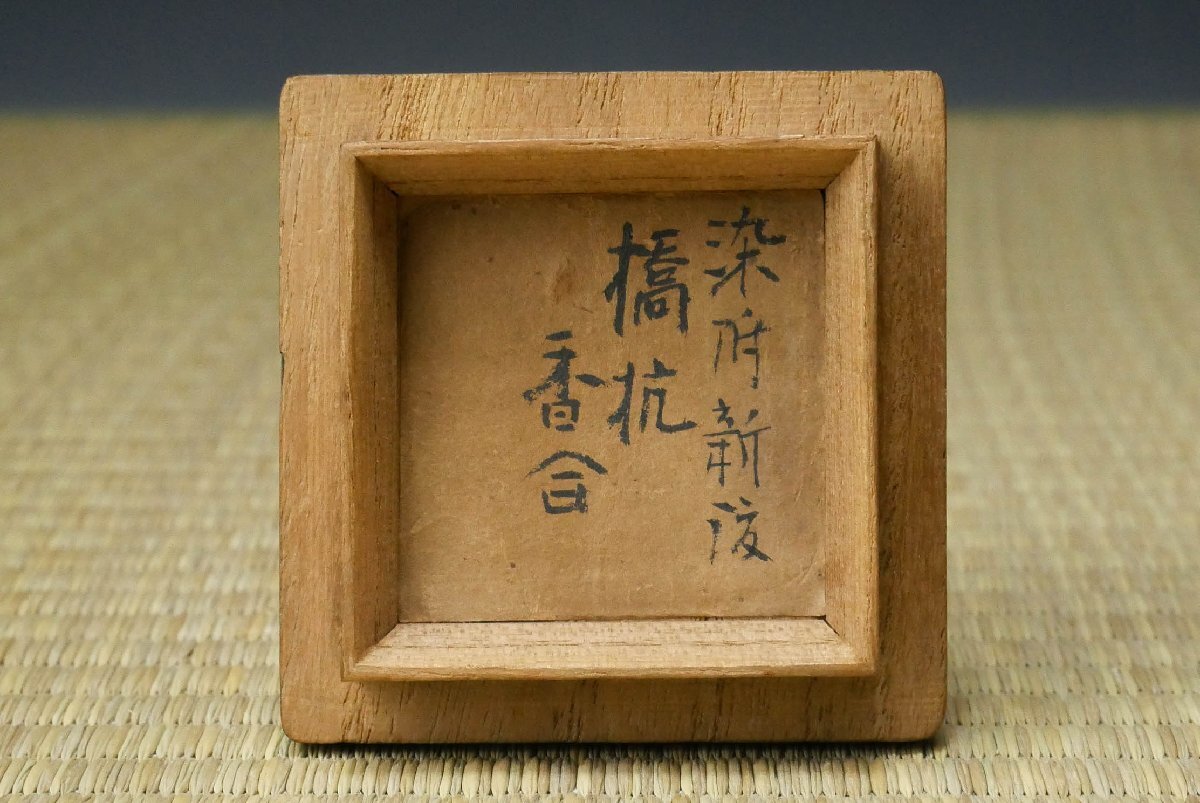 染附新渡
橋杭
香合